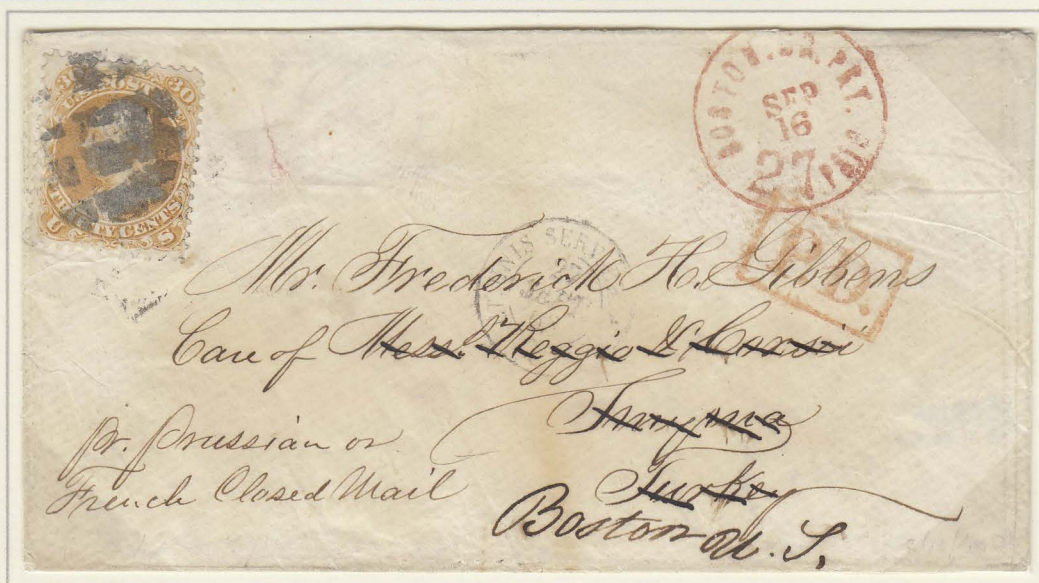 30 30
U.S. POST
THIRTY CENTS
U S
BOSTON. BR. PKT.
SEP
16
27
PAID
P.D.
SERV
27
SEPT
Mr. Frederick H. Gibbens
Care of Mess. Reggio &
Smyrna
Turkey
Boston U. S.
pr. Prussian or
French Closed Mail